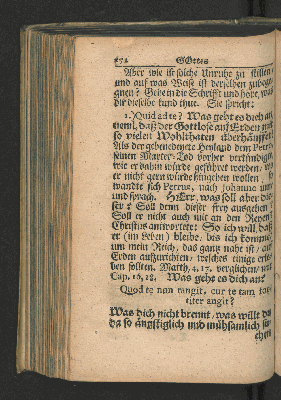 GOttes
Aber wie ist solche Unruhe zu stillen/
und auf was Weise ist derselben zubege-
gnen? Gehe in die Schrifft und höre, was
dir dieselbe kund thut. Sie spricht:
1.) Quid ad te? Was geht es dich an/
daß der Gottlose auf Erden mit
so vielen Wohlthaten überhäufft
Als der gebenedeyte Heyland dem Petro
seinen Marter-Tod vorher verkündigte,
wie er dahin würde geführet werden, wo
er nicht gern würde hingehen wollen, so
wandte sich Petrus, sach Johannem
und sprach. HErr, was soll aber die-
ser? Soll denn dieser frey ausgehen?
Soll er nicht auch mit an den Reyen?
Christus antwortete: So ich will, daß
er (im Leben) bleibe, bis ich komme
um mein Reich, das gantz nahe ist, auf
Erden aufzurichten, welches einige erle-
ben sollen. Matth. 4, 17. verglichen mit
Cap. 16, 28. Was geht es dich an?
Quod te non tangit, cur te tam
iter angit?
Was dich nicht brennt, was willt du
da so ängstiglich und mühsamlich